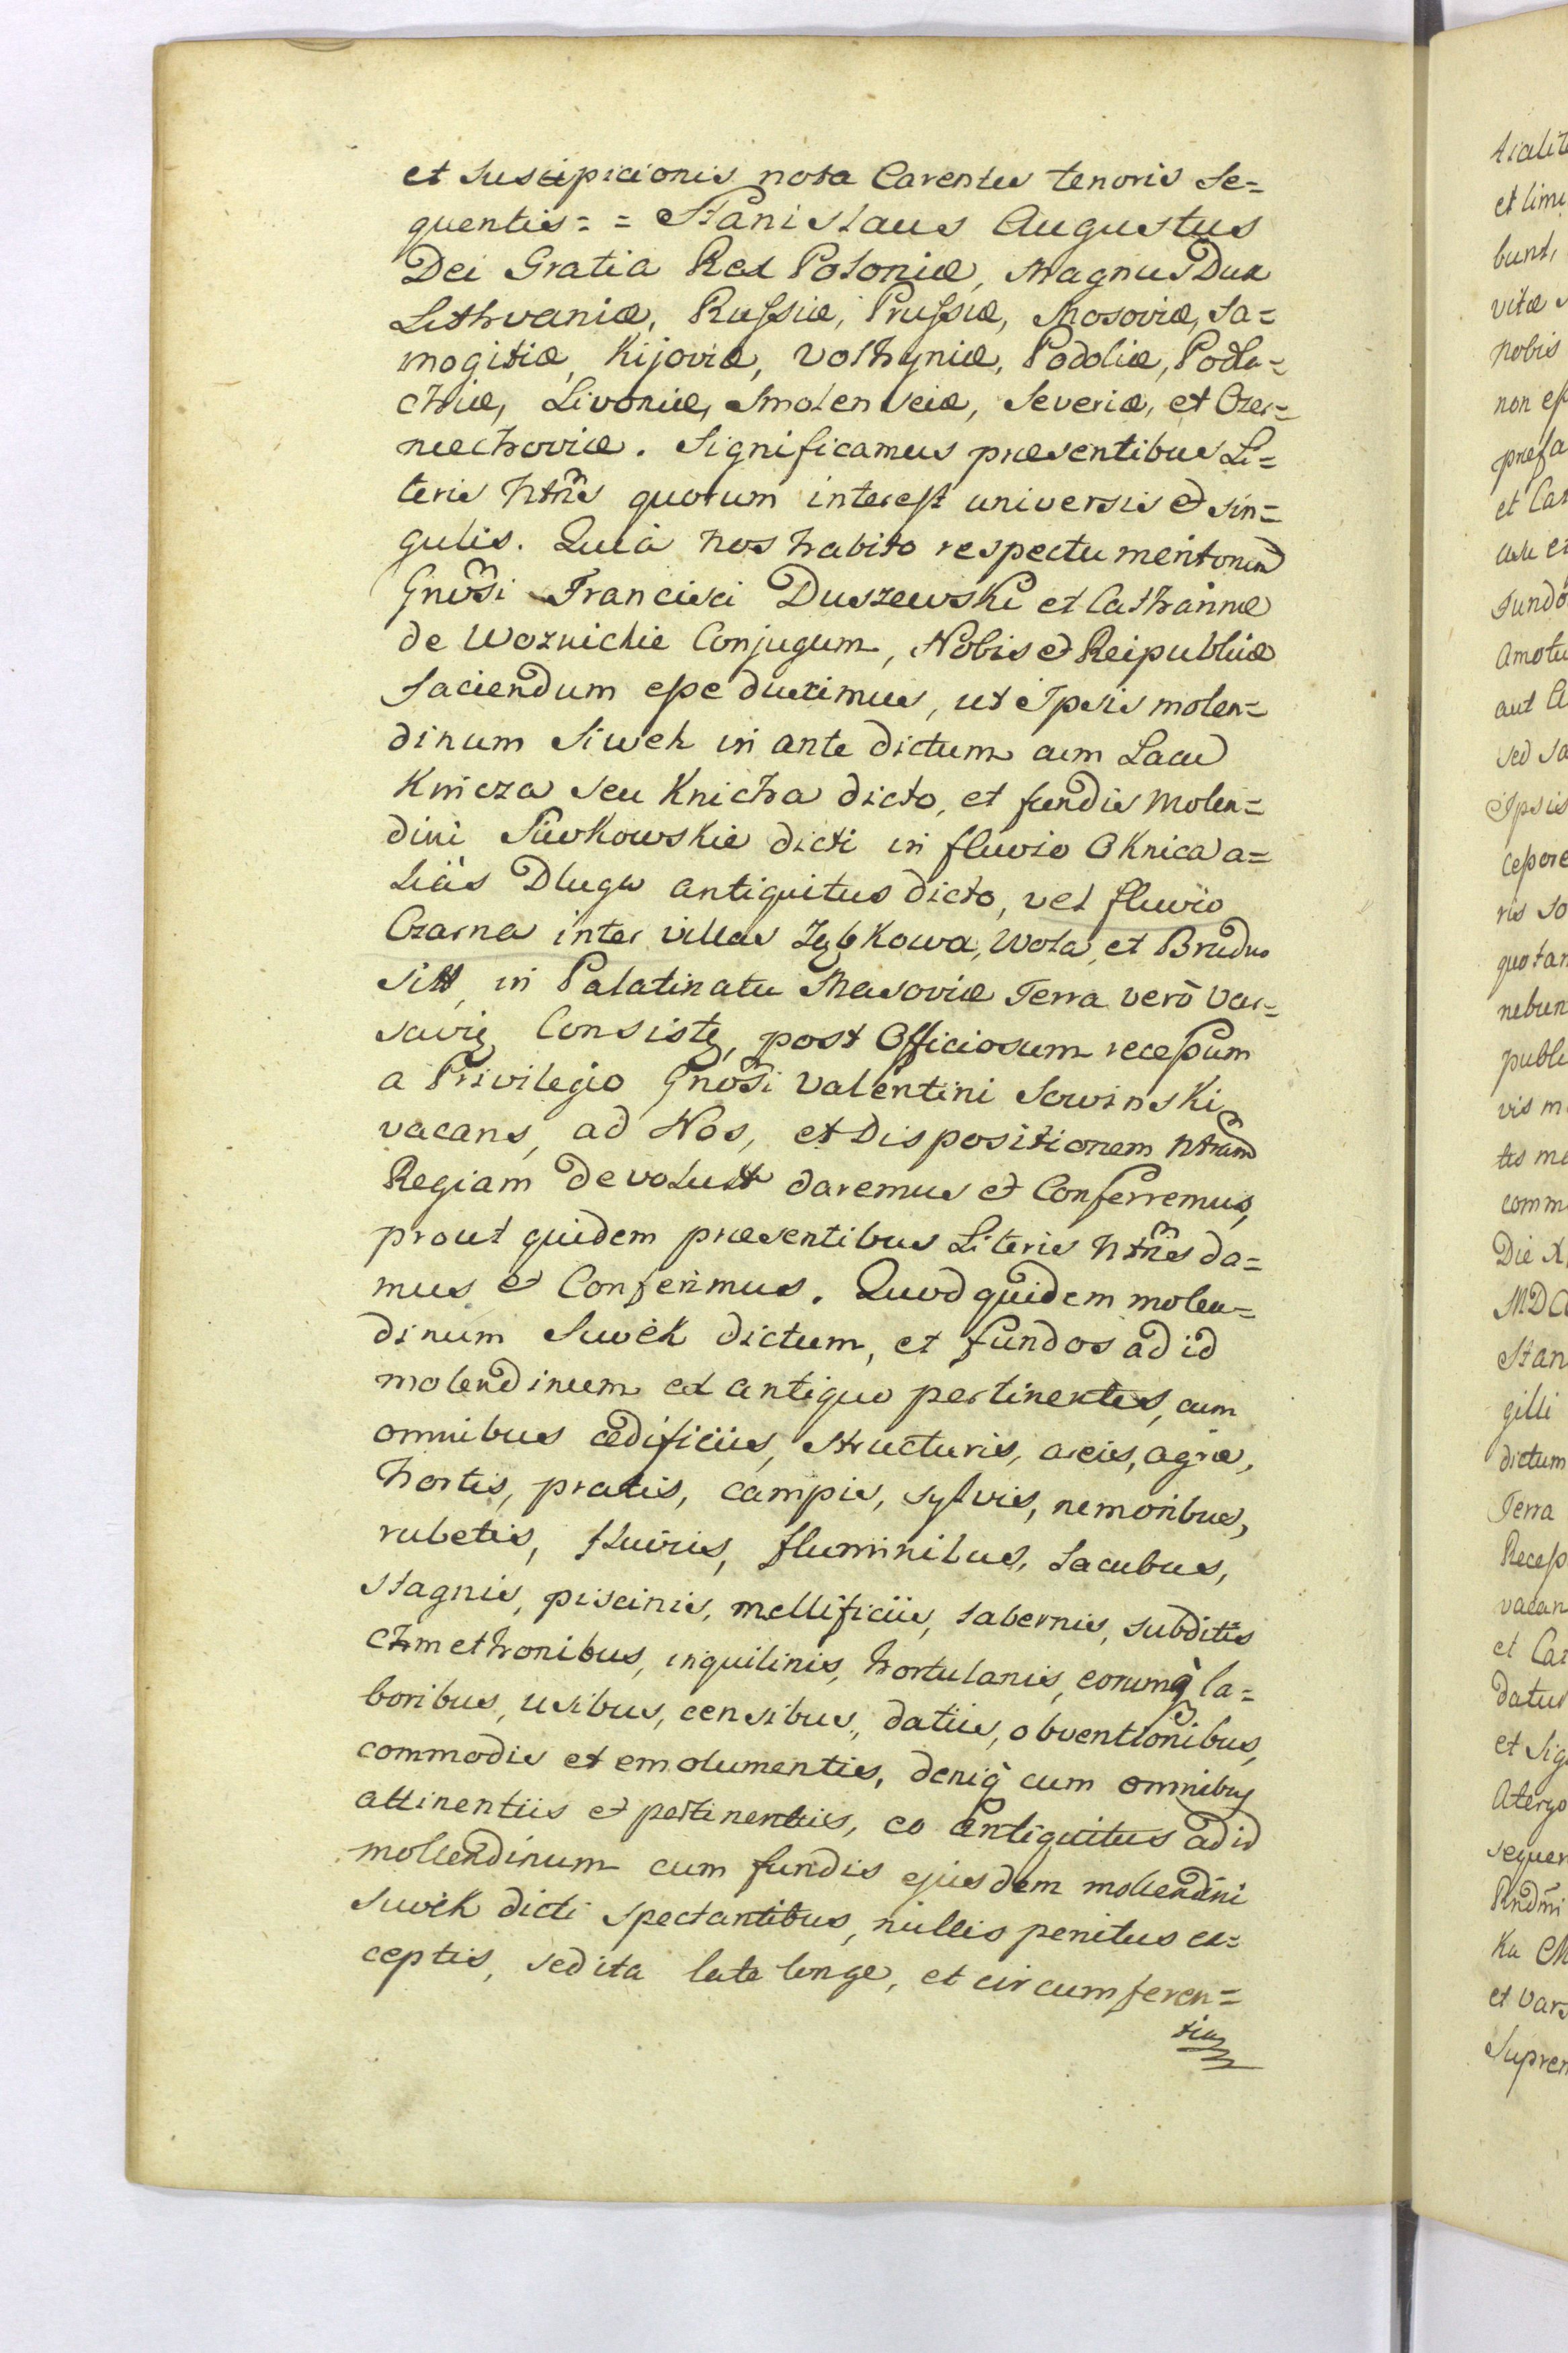 et suscipicionis nota Carentes tenoris se=
quentis = = Stanislaus Augustus
Dei Gratia Rex Poloniæ, Magnus Dux
Lithvaniæ, Russiæ, Prussiæ, Masoviæ, Sa=
mogitiæ, Kijoviæ, Volhyniæ, Podoliæ, Podla=
chiæ, Livoniæ, Smolensciæ, Severiæ, et Czer=
niechoviæ. Significamus præsentibus Li=
teris Ntris quorum interest universis et sin=
gulis. Quia Nos habito respectu meritorum
Gnosi Francisci Duszewski et Catharinæ
de Woznickie Conjugum, Nobis et Reipublicæ
faciendum esse duximus, ut Ipsis molen=
dinum Siwek in ante dictum cum Lacu
Knicza seu Knicha dicto, et fundis Molen=
dini Siwkowskie dicti in fluvio Oknica a=
liàs Dluga antiquitus dicto, vel fluvio
Czarna inter villas Ząbkowa, Wola, et Brudno
sitt, in Palatinatu Masoviæ Terra verò Var=
savię Consistę, post Officiosum recessum
a Privilegio Gnosi Valentini Sowinski
vacans, ad Nos, et Dispositionem Ntram
Regiam devolutt daremus et Conferremus,
prout quidem præsentibus Literis Ntris da=
mus et Conferimus. Quod quidem molen=
dinum Siwek dictum, et fundos ad id
molendinum ex antiquo pertinentes, cum
omnibus ædificiis, structuris, areis, agris,
hortis, pratis, campis, sylvis, nemoribus,
rubetis, fluviis, fluminibus, Lacubus,
stagnis, piscinis, mellificiis, tabernis, subditis
chmethonibus, inquilinis, hortulanis, eorumq la=
boribus, usibus, censibus, datiis, obventionibus,
commodis et emolumentis, deniq cum omnibus
attinentiis et pertinentiis, eo antiquitus ad id
mollendinum cum fundis ejusdem mollendini
Siwek dicti spectantibus, nullis penitus ex=
ceptis, sed ita late longe, et circumferen=
tia